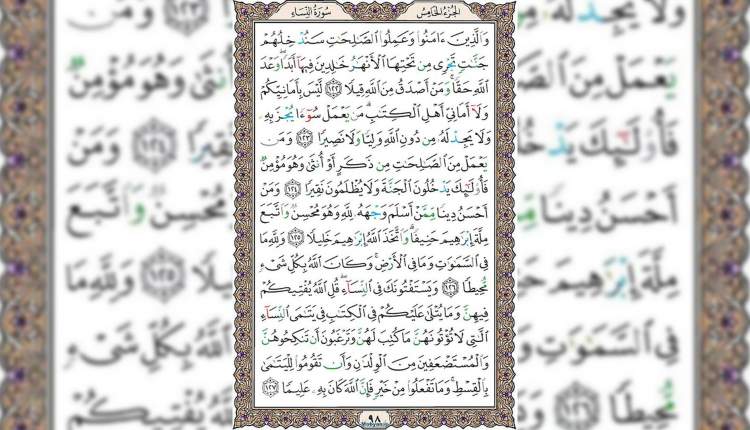 سُورَةُ النِّسَاءِ
الجُزْءُ الخَامِسُ
وَالَّذِينَ ءَامَنُوا وَعَمِلُوا الصَّلِحَتِ سَنُدْخِلُهُمْ
جَنَّتٍ تَجْرِى مِن تَحْتِهَا الْأَنْهَرُ خَلِدِينَ فِيهَا أَبَدًا وَعْدَ
اللَّهِ حَقًّا وَمَنْ أَصْدَقُ مِنَ اللَّهِ قِيلًا ١٢٢ لَّيْسَ بِأَمَانِيِّكُمْ
وَلَا أَمَانِىِّ أَهْلِ الْكِتَبِ مَن يَعْمَلْ سُوءًا يُجْزَ بِهِ
وَلَا يَجِدْ لَهُ مِن دُونِ اللَّهِ وَلِيًّا وَلَا نَصِيرًا ١٢٣ وَمَن
يَعْمَلْ مِنَ الصَّلِحَتِ مِن ذَكَرٍ أَوْ أُنثَى وَهُوَ مُؤْمِنٌ
فَأُولَئِكَ يَدْخُلُونَ الْجَنَّةَ وَلَا يُظْلَمُونَ نَقِيرًا ١٢٤ وَمَنْ
أَحْسَنُ دِينًا مِّمَّنْ أَسْلَمَ وَجْهَهُ لِلَّهِ وَهُوَ مُحْسِنٌ وَاتَّبَعَ
مِلَّةَ إِبْرَهِيمَ حَنِيفًا وَاتَّخَذَ اللَّهُ إِبْرَهِيمَ خَلِيلًا ١٢٥ وَلِلَّهِ مَا
فِى السَّمَوَتِ وَمَا فِى الْأَرْضِ وَكَانَ اللَّهُ بِكُلِّ شَىْءٍ
مُّحِيطًا ١٢٦ وَيَسْتَفْتُونَكَ فِى النِّسَاءِ قُلِ اللَّهُ يُفْتِيكُمْ
فِيهِنَّ وَمَا يُتْلَى عَلَيْكُمْ فِى الْكِتَبِ فِى يَتَمَى النِّسَاءِ
الَّتِى لَا تُؤْتُونَهُنَّ مَا كُتِبَ لَهُنَّ وَتَرْغَبُونَ أَن تَنكِحُوهُنَّ
وَالْمُسْتَضْعَفِينَ مِنَ الْوِلْدَنِ وَأَن تَقُومُوا لِلْيَتَمَى
بِالْقِسْطِ وَمَا تَفْعَلُوا مِنْ خَيْرٍ فَإِنَّ اللَّهَ كَانَ بِهِ عَلِيمًا ١٢٧
٩٨